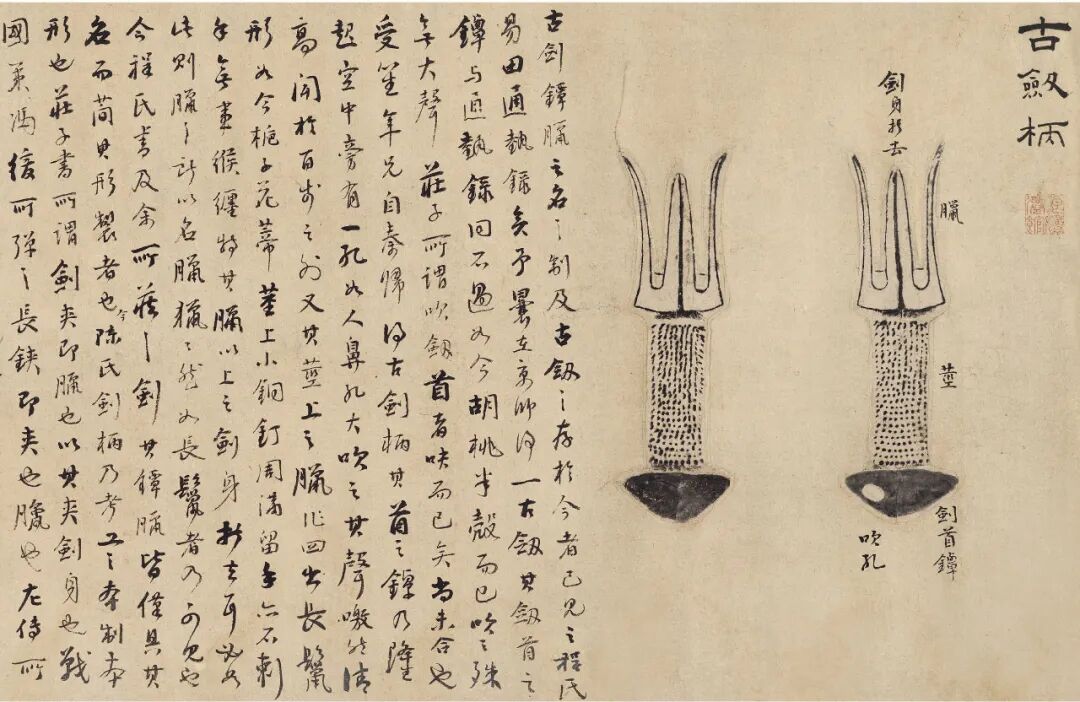 古劔柄
劍身折去
臘
莖
劍首鐔
吹孔
古劍鐔臘之名之制及古劔之存於今者已見之程氏
易田通藝錄矣予曩在京師得一古劔其劔首之
鐔与通藝錄同不過如今胡桃半殼而已吹之殊
無大聲莊子所謂吹劔首者吷而已矣尚未合也
受笙年兄自秦歸得古劍柄其首之鐔乃隆
起空中旁有一孔如人鼻孔大吹之其聲嗷然清
高聞於百步之外又其莖上之臘作四出長鬛
形如今梔子花蒂莖上小銅釘周滿留手亦不刺
手無緱纏特其臘以上之劍身折去耳必如
此則臘之所以名臘獵獵然如長鬛者乃可見也
今程氏書及余所藏之劍其鐔臘皆僅具其
名而簡其形製者也今陳氏劍柄乃考工之本制本
形也莊子書所謂劍夾即臘也以其夾劍身也戰
國策馮煖所彈之長鋏即夾也臘也左傳所